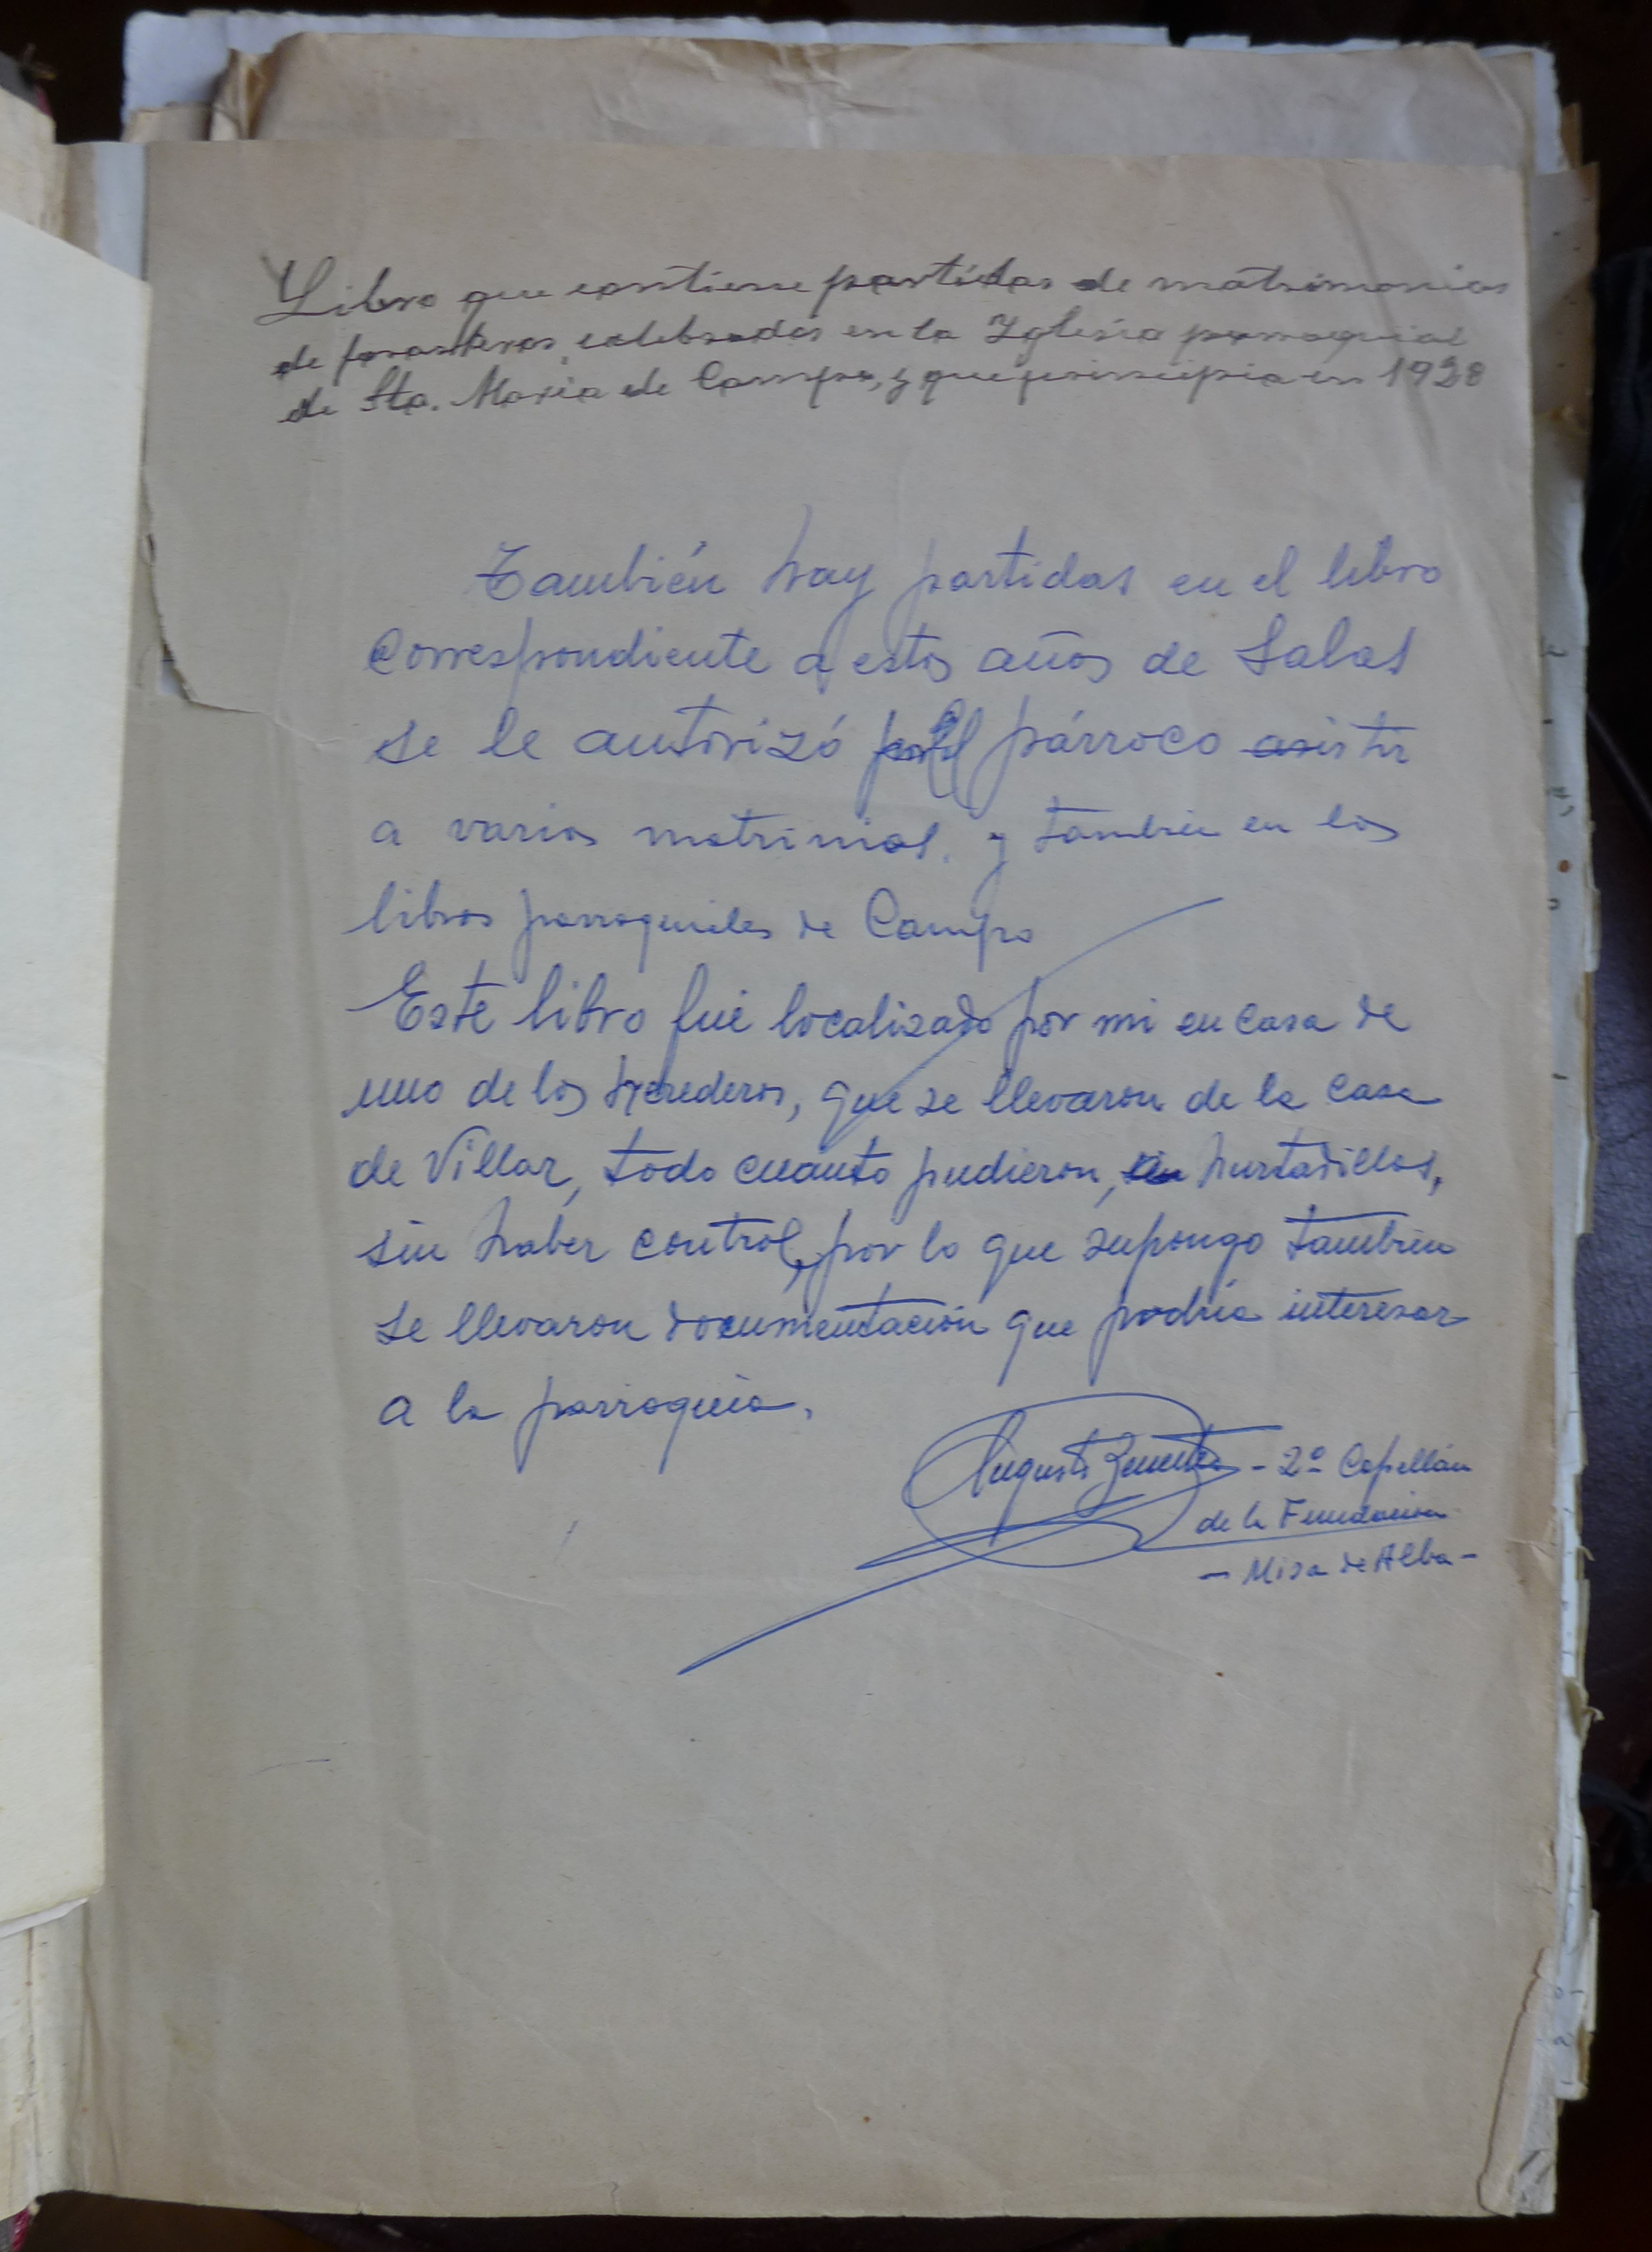 Libro que contiene partidas de matrimonios
de forasteros, celebrados en la Iglesia parroquial
de Sta. Maria de Campo, y que principia en 1928
También hay partidas en el libro
correspondiente a estos años de Salas
se le autorizó por el párroco asistir
a varios matrimios. y tambien en los
libros parroquiales de Campo
Este libro fué localizado por mi en casa de
uno de los herederos, que se llevaron de la casa
de Villar, todo cuanto pudieron, hurtadillas,
sin haber control, por lo que supongo también
se llevaron documentación que podría interesar
a la parroquia.
Augusto - 2º Capellán
de la Fundación
- Misa de Alba -